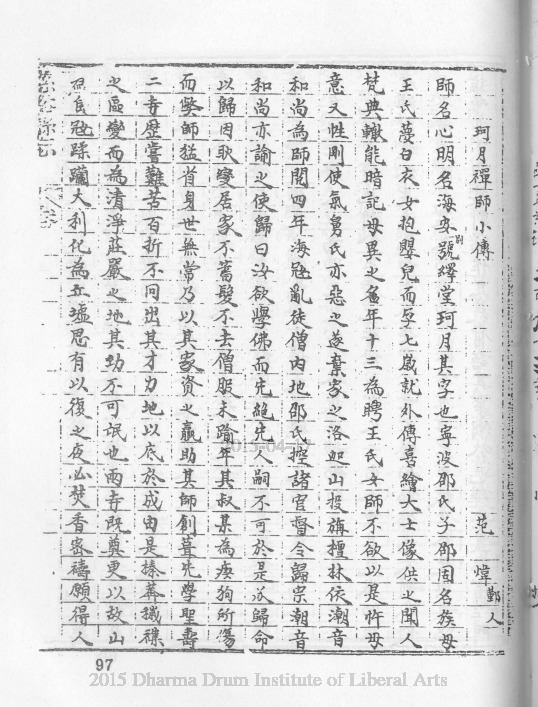 珂月禪師小傳
范 惲 鄞人
師名心明名海安號別繹堂珂月其字也寧波邵氏子邵固名族母
王氏夢白衣女抱嬰兒而孕七歲就外傅喜繪大士像供之聞人
梵典輒能暗記母異之年十三為聘王氏女師不欲以是忤母
意又性剛使氣舅氏亦惡之遂棄家之洛迦山投旃檀林依潮音
和尚為師閱四年海冦亂徒僧內地邵氏控諸官督令歸宗潮音
和尚亦諭之使歸曰汝欲學佛而先絕先人嗣不可於是返歸命
以歸因耿變居家不蓄髮不去僧服未踰年其叔某為瘈狗所傷
而斃師猛省身世無常乃以其家資之贏助其師創葺先學聖壽
二寺歷嘗難苦百折不回出其才力地以底於成由是榛莽穢穢
之區變而為清淨莊嚴之地其功不可氓也兩寺既奠更以故山
冦蹂躪大利化為丘墟思有以復之夜必焚香密禱願得人
97
2015 Dharma Drum Institute of Liberal Arts